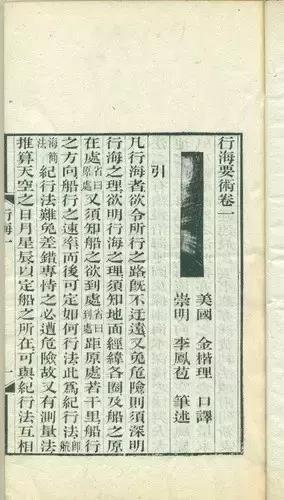 行海要術卷一
美國 金楷理 口譯
崇明 李鳳苞 筆述
引
凡行海者欲令所行之路既不迂遠又免危險則須深明
行海之理欲明行海之理須知地面經緯各圈及船之原
在處省曰原處又須知船之欲到處省曰到處距原處若干里船行
之方向船行之速率而後可定如何行法此為紀行法即航
海簡法紀行法難免差錯專恃之必遭危險故又有測量法
推算天空之日月星辰以定船之所在可與紀行法互相
行海一